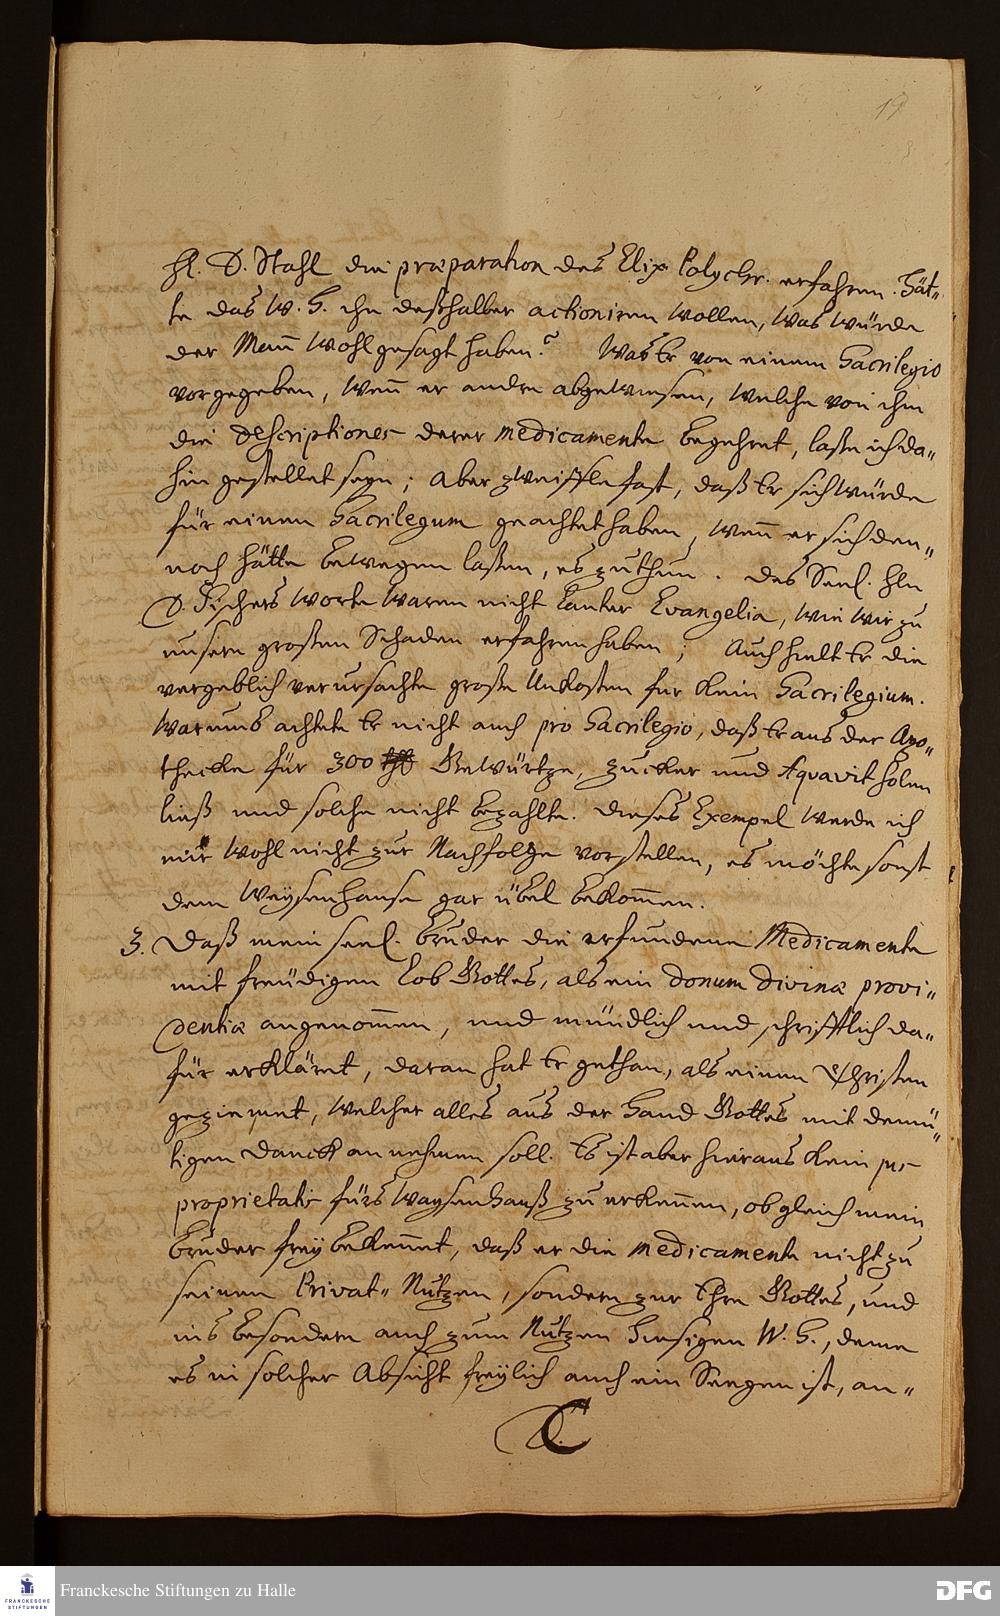 19
Hl. D. Stahl die præparation des Elix. Polychr. erfahren. Hät„
te das W. H. ihn deßhalber actioniren wollen, was würde
der Mann wohl gesagt haben? Was Er von einem Sacrilegio
vorgegeben, wenn er andre abgewiesen, welche von ihm
die descriptiones derer medicamente begehret, laße ich da„
hin gestellet seyn; aber zweiffle fast, daß Er sich würde
für einen Sacrilegum geachtet haben, wenn er sich den„
noch hätte bewegen laßen, es zu thun. Des Seel. Hln
D. Fischers Worte waren nicht lauter Evangelia, wie wir zu
unsern großen Schaden erfahren haben; Auch hielt Er die
vergeblich verursachte große Unkosten für kein Sacrilegium.
Warumb achtete Er nicht auch pro Sacrilegio, daß Er aus der Apo„
thecke für 300 thl Gewürtze, Zucker und Aquavit holen
ließ und solche nicht bezahlte. Dieses Exempel werde ich
mir wohl nicht zur Nachfolge vorstellen, es möchte sonst
dem Weysenhause gar übel bekommen.
3. Daß mein seel. Bruder die erfundene Medicamente
mit freudigen Lob Gottes, als ein donum divinæ provi„
dentiæ angenommen, und mündlich und schrifftlich da„
für erkläret, daran hat Er gethan, als einen Christen
geziemet, welcher alles aus der Hand Gottes mit demü„
tigen Danck annehmen soll. Es ist aber hieraus kein jus
proprietatis fürs Waysenhauß zu erkennen, obgleich mein
Bruder frey bekennet, daß er die medicamente nicht zu
seinen Privat„ Nutzen, sondern zur Ehre Gottes, und
ins besondern auch zum Nutzen hiesigen W. H., deme
es in solcher Absicht freylich auch ein Seegen ist, an„
C
Franckesche Stiftungen zu Halle
FRANCKESCHE
STIFTUNGEN
DFG